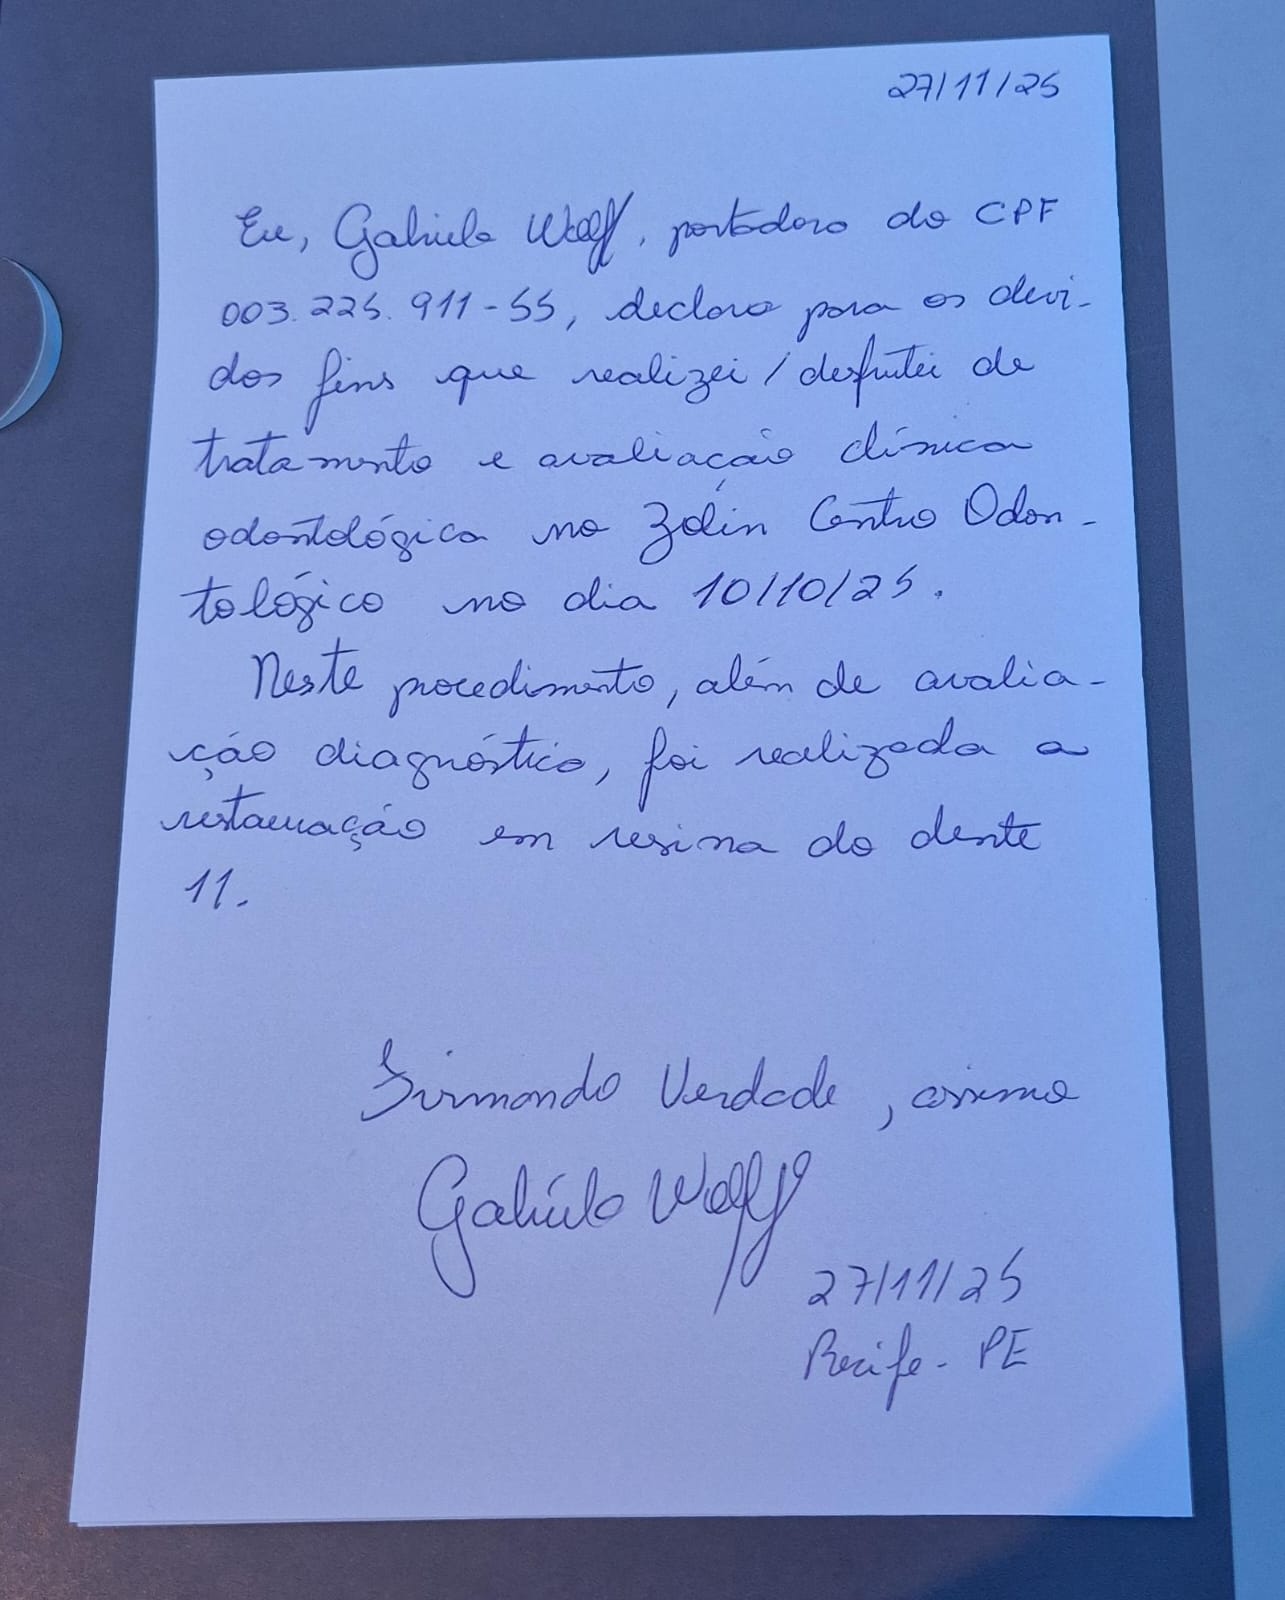 27/11/25
Eu, Gabriela Wolff, portadora do CPF
003.225.911-55, declaro para os devi-
dos fins que realizei/desfrutei de
tratamento e avaliação clínica
odontológica no Zolin Centro Odon-
tológico no dia 10/10/25.
Neste procedimento, além de avalia-
ção diagnóstica, foi realizada a
restauração em resina do dente
11.
Firmando Verdade, assino
Gabriela Wolff
27/11/25
Recife - PE